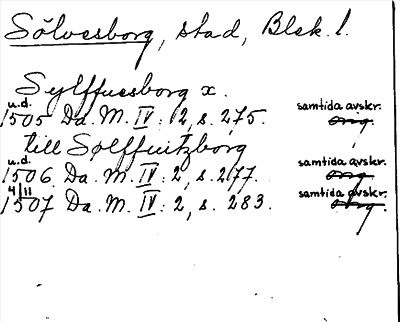 Sölvesborg, stad, Blek. l.
Sylffuesborg x.
u.d. samtida avskr.
1505 Da. M. IV: 2, s. 275. orig.
till Sølffuitzborg
u.d. samtida avskr.
1506 Da. M. IV: 2, s. 277. orig.
4/11 samtida avskr.
1507 Da. M. IV: 2, s. 283. orig.